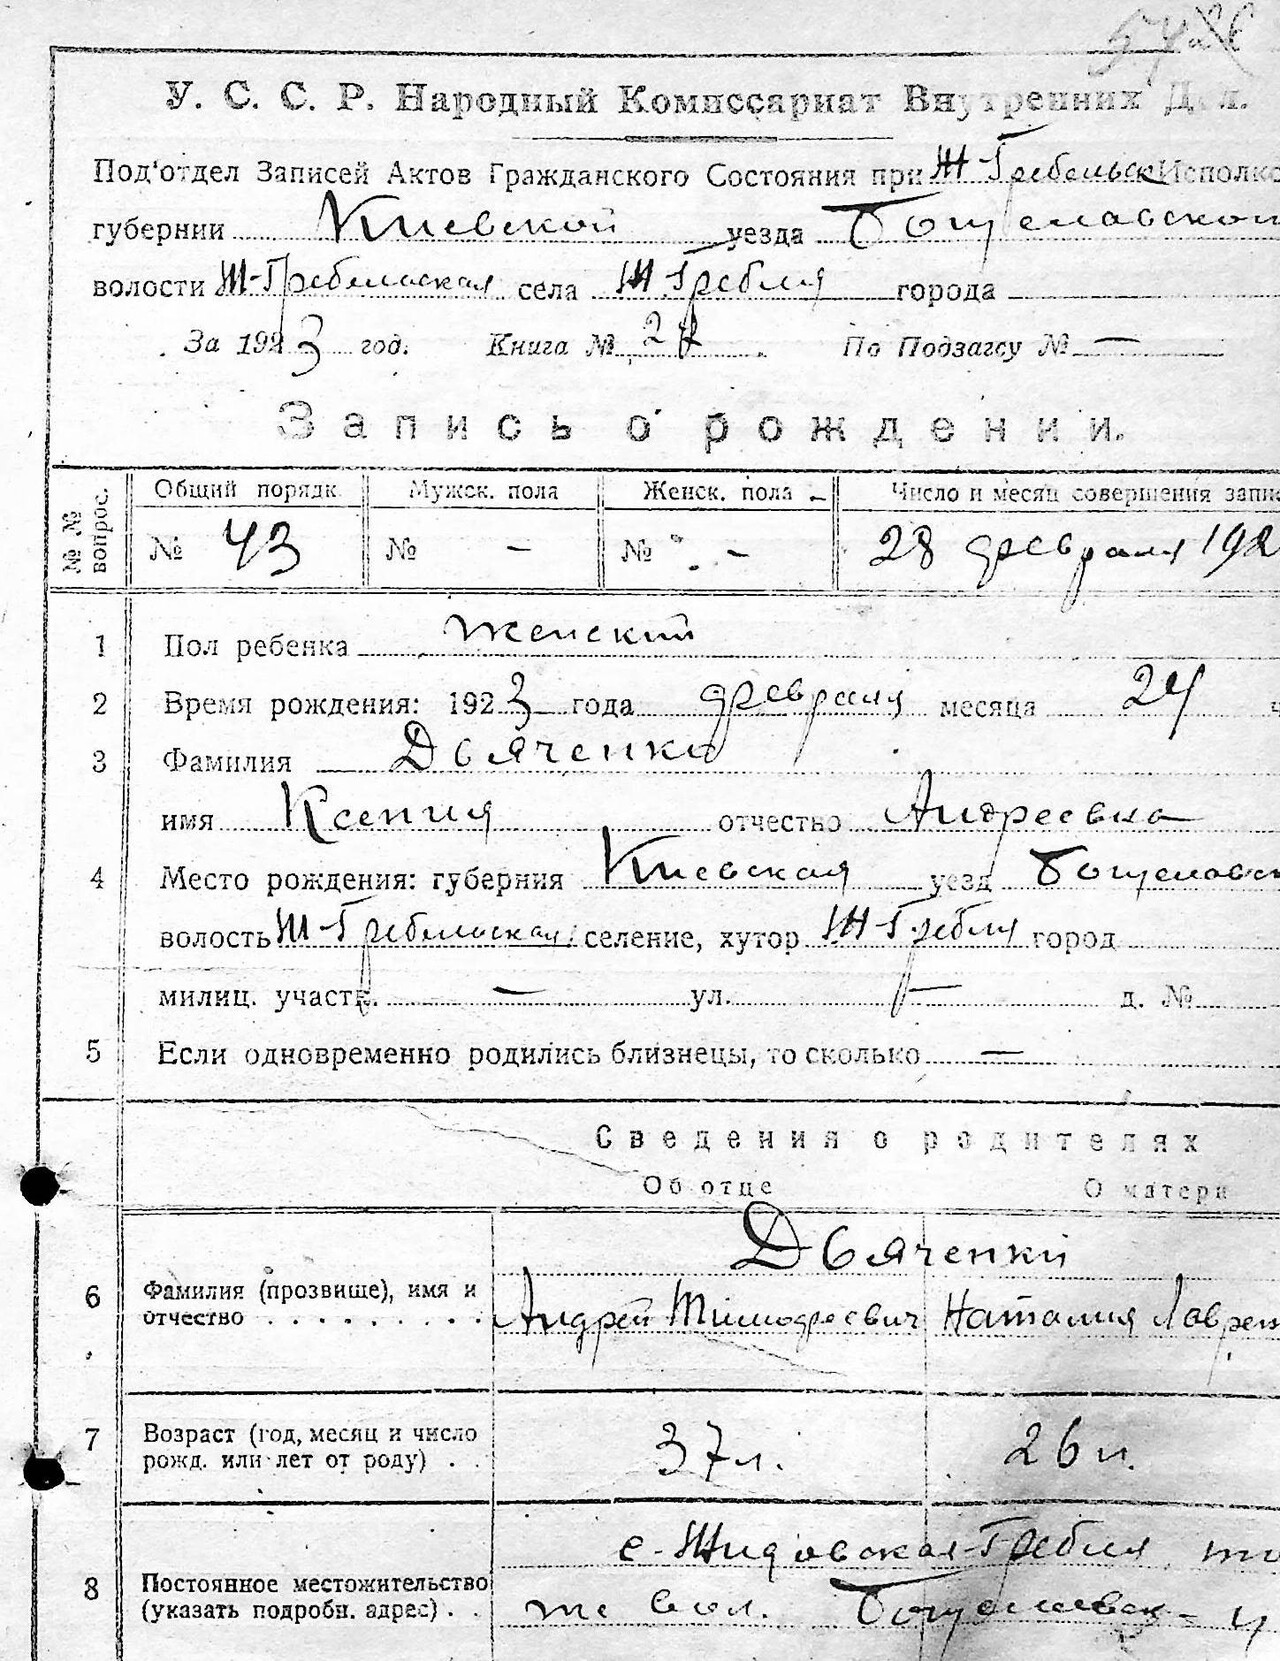 У. С. С. Р. Народный Комиссариат Внутренних Дел.
Под'отдел Записей Актов Гражданского Состояния при Ж-Гребельск Исполко
губернии Киевской уезда Богуславской
волости Ж-Гребельская села Ж Гребля города —
За 1923 год. Книга № По Подзагсу № —
Запись о рождении.
№ № вопрос.
Общий порядк. Мужск. пола Женск. пола — Число и месяц совершения запис
№ 43 № — № — 28 февраля 192
1 Пол ребенка женский
2 Время рождения: 1923 года февраля месяца 24 ч
3 Фамилия Дьяченко
имя Ксения отчество Андреевна
4 Место рождения: губерния Киевская уезд Богуславск
волость Ж-Гребельская селение, хутор Ж-Гребля город
милиц. участк. — ул. — д. №
5 Если одновременно родились близнецы, то сколько —
Сведения о родителях
Об отце О матери
Дьяченки
6 Фамилия (прозвище), имя и
отчество . . . . . . . . . Андрей Тимофеевич Наталия Лаврен
7 Возраст (год, месяц и число
рожд. или лет от роду) . . 37 л. 26 л.
с. Жидовская-Гребля то
8 Постоянное местожительство
(указать подробн. адрес) . . же вол. Богуславск - у